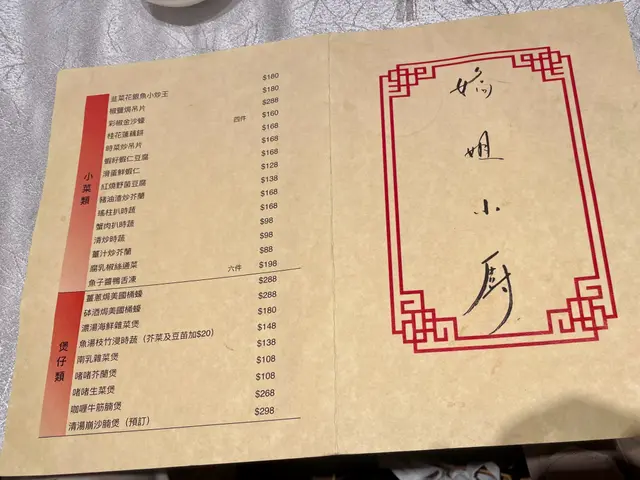 小菜類
韭菜花銀魚小炒王 $180
椒鹽焗吊片 $180
彩椒金沙蠔 $288
桂花蓮藕餅 四件 $160
時菜炒吊片 $168
蝦籽蝦仁豆腐 $168
滑蛋鮮蝦仁 $168
紅燒野菌豆腐 $128
豬油渣炒芥蘭 $138
瑤柱扒時蔬 $168
蟹肉扒時蔬 $168
清炒時蔬 $98
薑汁炒芥蘭 $98
腐乳椒絲通菜 $88
魚子醬鴨舌凍 六件 $198
煲仔類
薑蔥焗美國桶蠔 $288
砵酒焗美國桶蠔 $288
濃湯海鮮雜菜煲 $180
魚湯枝竹浸時蔬（芥菜及豆苗加$20） $148
南乳雜菜煲 $138
啫啫芥蘭煲 $108
啫啫生菜煲 $108
咖喱牛筋腩煲 $268
清湯崩沙腩煲（預訂） $298
姐
小
厨